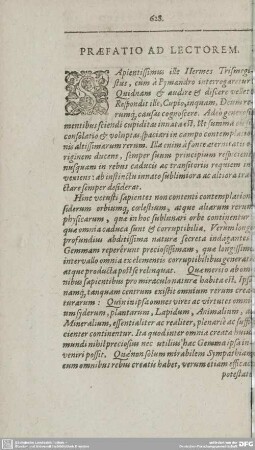 628.
PRÆFATIO AD LECTOREM.
SApientissimus ille Hermes Trismegi-
stus, cum à Pymandro interrogaretur
Quidnam & audire & discere velit?
Respondit ille, Cupio, inquam, Deum re-
rumq́; causas cognoscere. Adeò generosis
mentibus sciendi cupiditas innata est. Ut summa sit
consolatio & voluptas spaciari in campo contemplatio-
nis altissimarum rerum. Illæ enim à fonte æternitatis
originem ducent, semper suum principium respiciunt
nusquam in rebus caducis ac transitoriis requiem in-
venientes: ab instinctu innato sublimiora ac altiora tra-
ctare semper desiderat.
Hinc vetusti sapientes non contenti contemplatione
siderum orbiumq́; cœlestium, atque aliarum rerum
physicarum, quæ in hoc sublunari orbe continentur
quæ omnia caduca sunt & corruptibilia, Verum longè
profundius abditissima naturæ secreta indagantes
Gemmam repererunt preciosissimam, quæ longissimo
intervallo omnia ex elementis corruptibilibus generata
atque producta post se relinquat. Quæ meritò ab om-
nibus sapientibus pro miraculo naturæ habita est. Ipsa
namq́; tanquam centrum existit omnium rerum crea-
turarum: Quin in ipsa omnes vires ac virtutes omni-
um syderum, plantarum, Lapidum, Animalium, ac
Mineralium, essentialiter ac realiter, plenariè ac suffi-
cienter continentur. Ita quod inter omnia creata huius
mundi nihil preciosius nec utilius hac Gemma ipsa in-
veniri possit. Quæ non solum mirabilem Sympathiam
cum omnibus rebus creatis habet, verum etiam efficaci
potestate